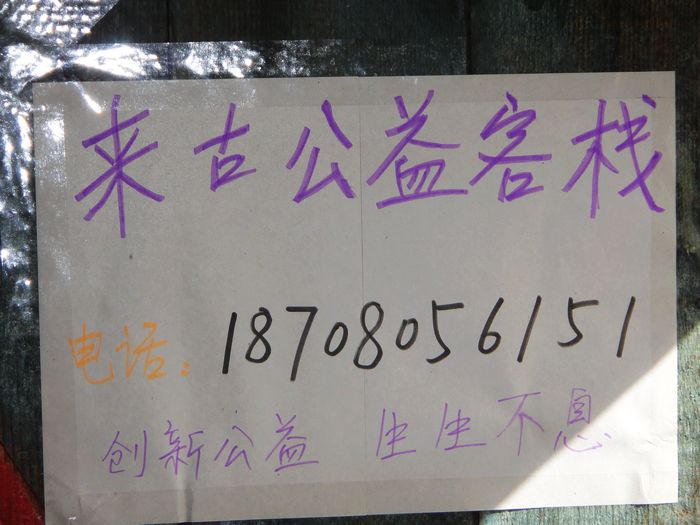 来古公益客栈
电话：18708056151
创新公益 生生不息